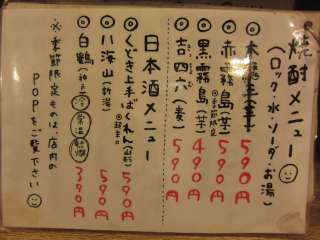 焼酎メニュー
(ロック・水・ソーダ・お湯)
590円
赤霧島(芋)590円
※季節限定
黒霧島(芋)490円
吉四六(麦)590円
日本酒メニュー
くどき上手ばくれん(山形)590円
※超辛口
八海山(新潟)590円
白鶴(神戸)冷 常温 熱燗 390円
※季節限定ものは、店内の
POPをご覧下さい